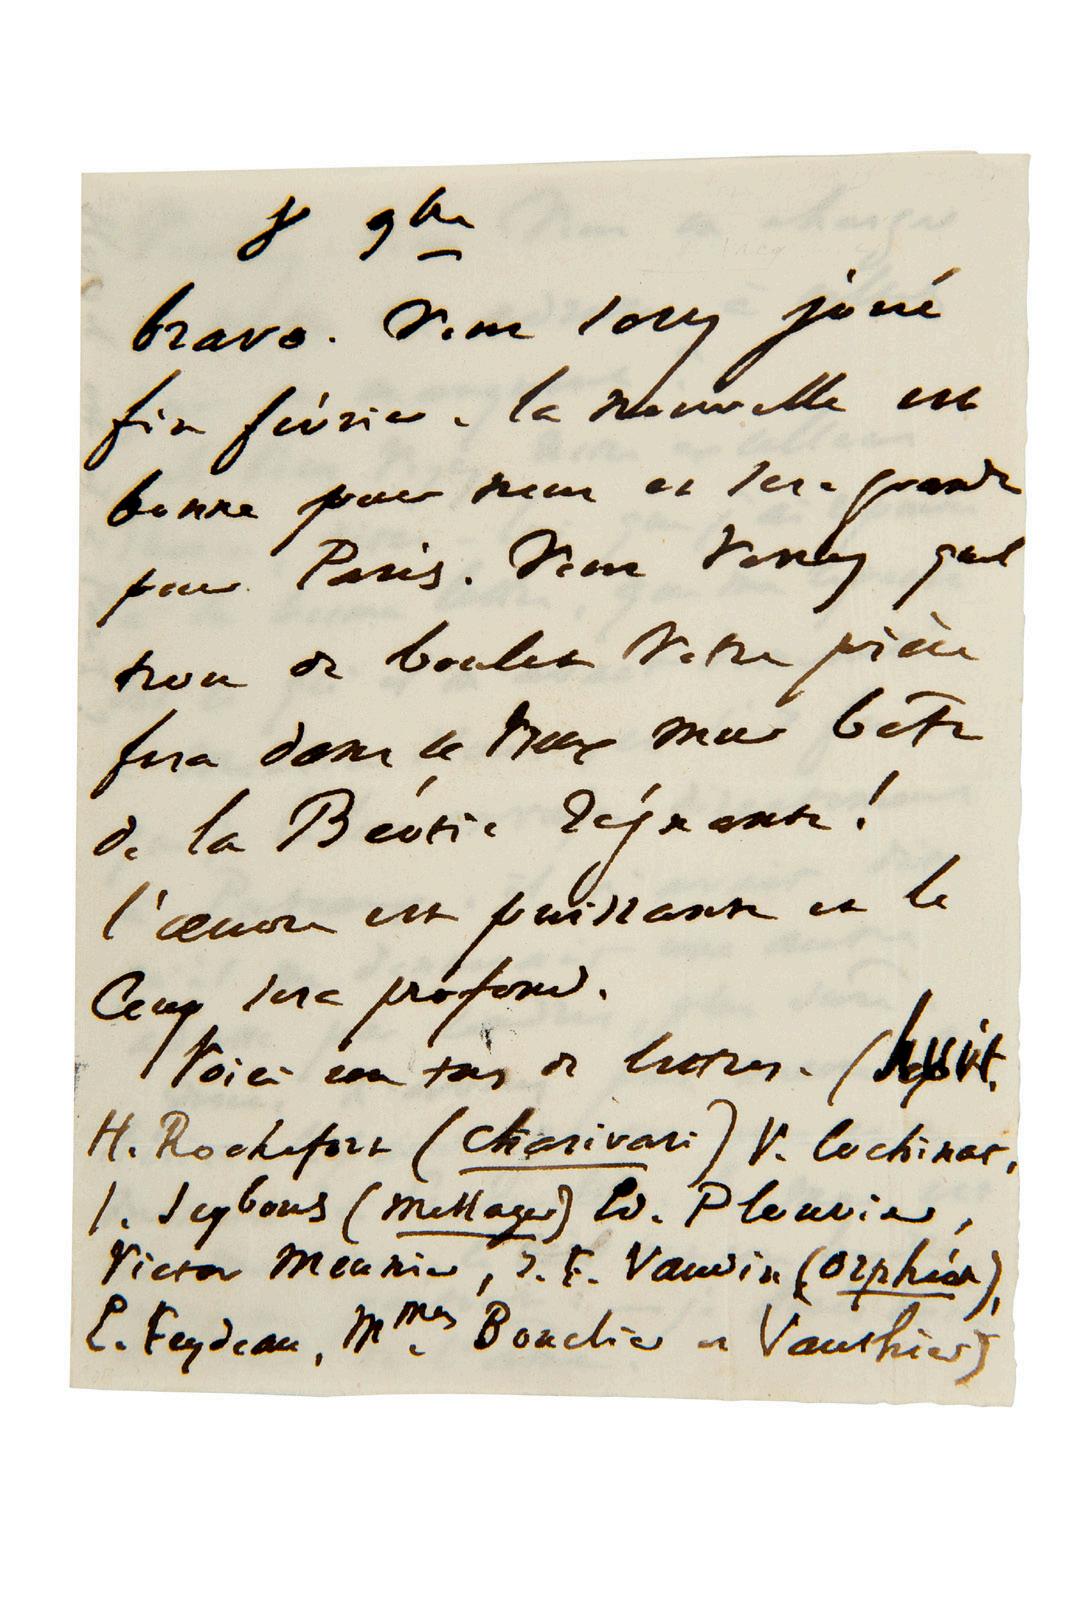 8 9bre
bravo. Vous serez joué
fin février. la nouvelle est
bonne pour nous et sera grande
pour Paris. Vous verrez quel
trou de boulet votre pièce
fera dans le vieux mur bête
de la Béotie régnante!
l'œuvre est puissante et le
Coup sera profond.
Voici un tas de lettres. (
H. Rochefort (Charivari) V. Cochinat,
J. Seybous (Messager) Ed. Plouvier,
Victor Meunier, J. F. Vaudin (Orphéon),
E. Feydeau, Mmes Bouclier et Vauthier)